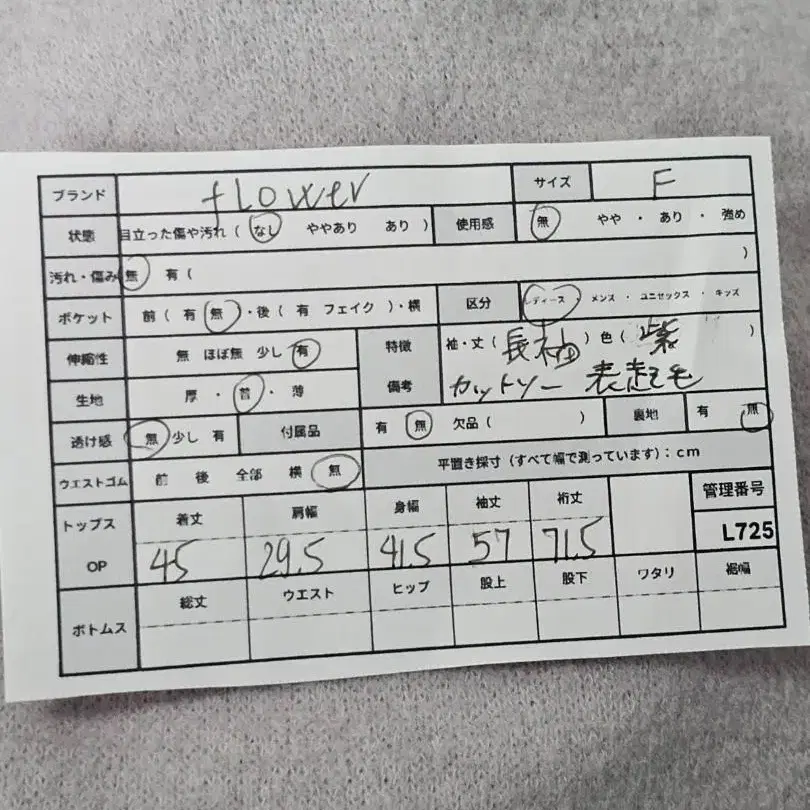 ブランド flower サイズ F
状態 目立った傷や汚れ ( なし ややあり あり ) 使用感 無 やや ・ あり ・ 強め
汚れ・傷み 無 有 ( )
ポケット 前 ( 有 無 )・後 ( 有 フェイク )・横 区分 レディース ・ メンス ・ ユニセックス ・ キッズ
伸縮性 無 ほぼ無 少し 有 特徴 備考 袖・丈 ( 長袖 ) 色 ( 紫 )
生地 厚 ・ 普 ・ 薄 カットソー 表起毛
透け感 無 少し 有 付属品 有 無 欠品 ( ) 裏地 有 無
ウエストゴム 前 後 全部 横 無 平置き採寸 (すべて幅で測っています) : cm
トップス OP 着丈 肩幅 身幅 袖丈 裄丈 管理番号
45 29.5 41.5 57 71.5 L725
ボトムス 総丈 ウエスト ヒップ 股上 股下 ワタリ 裾幅